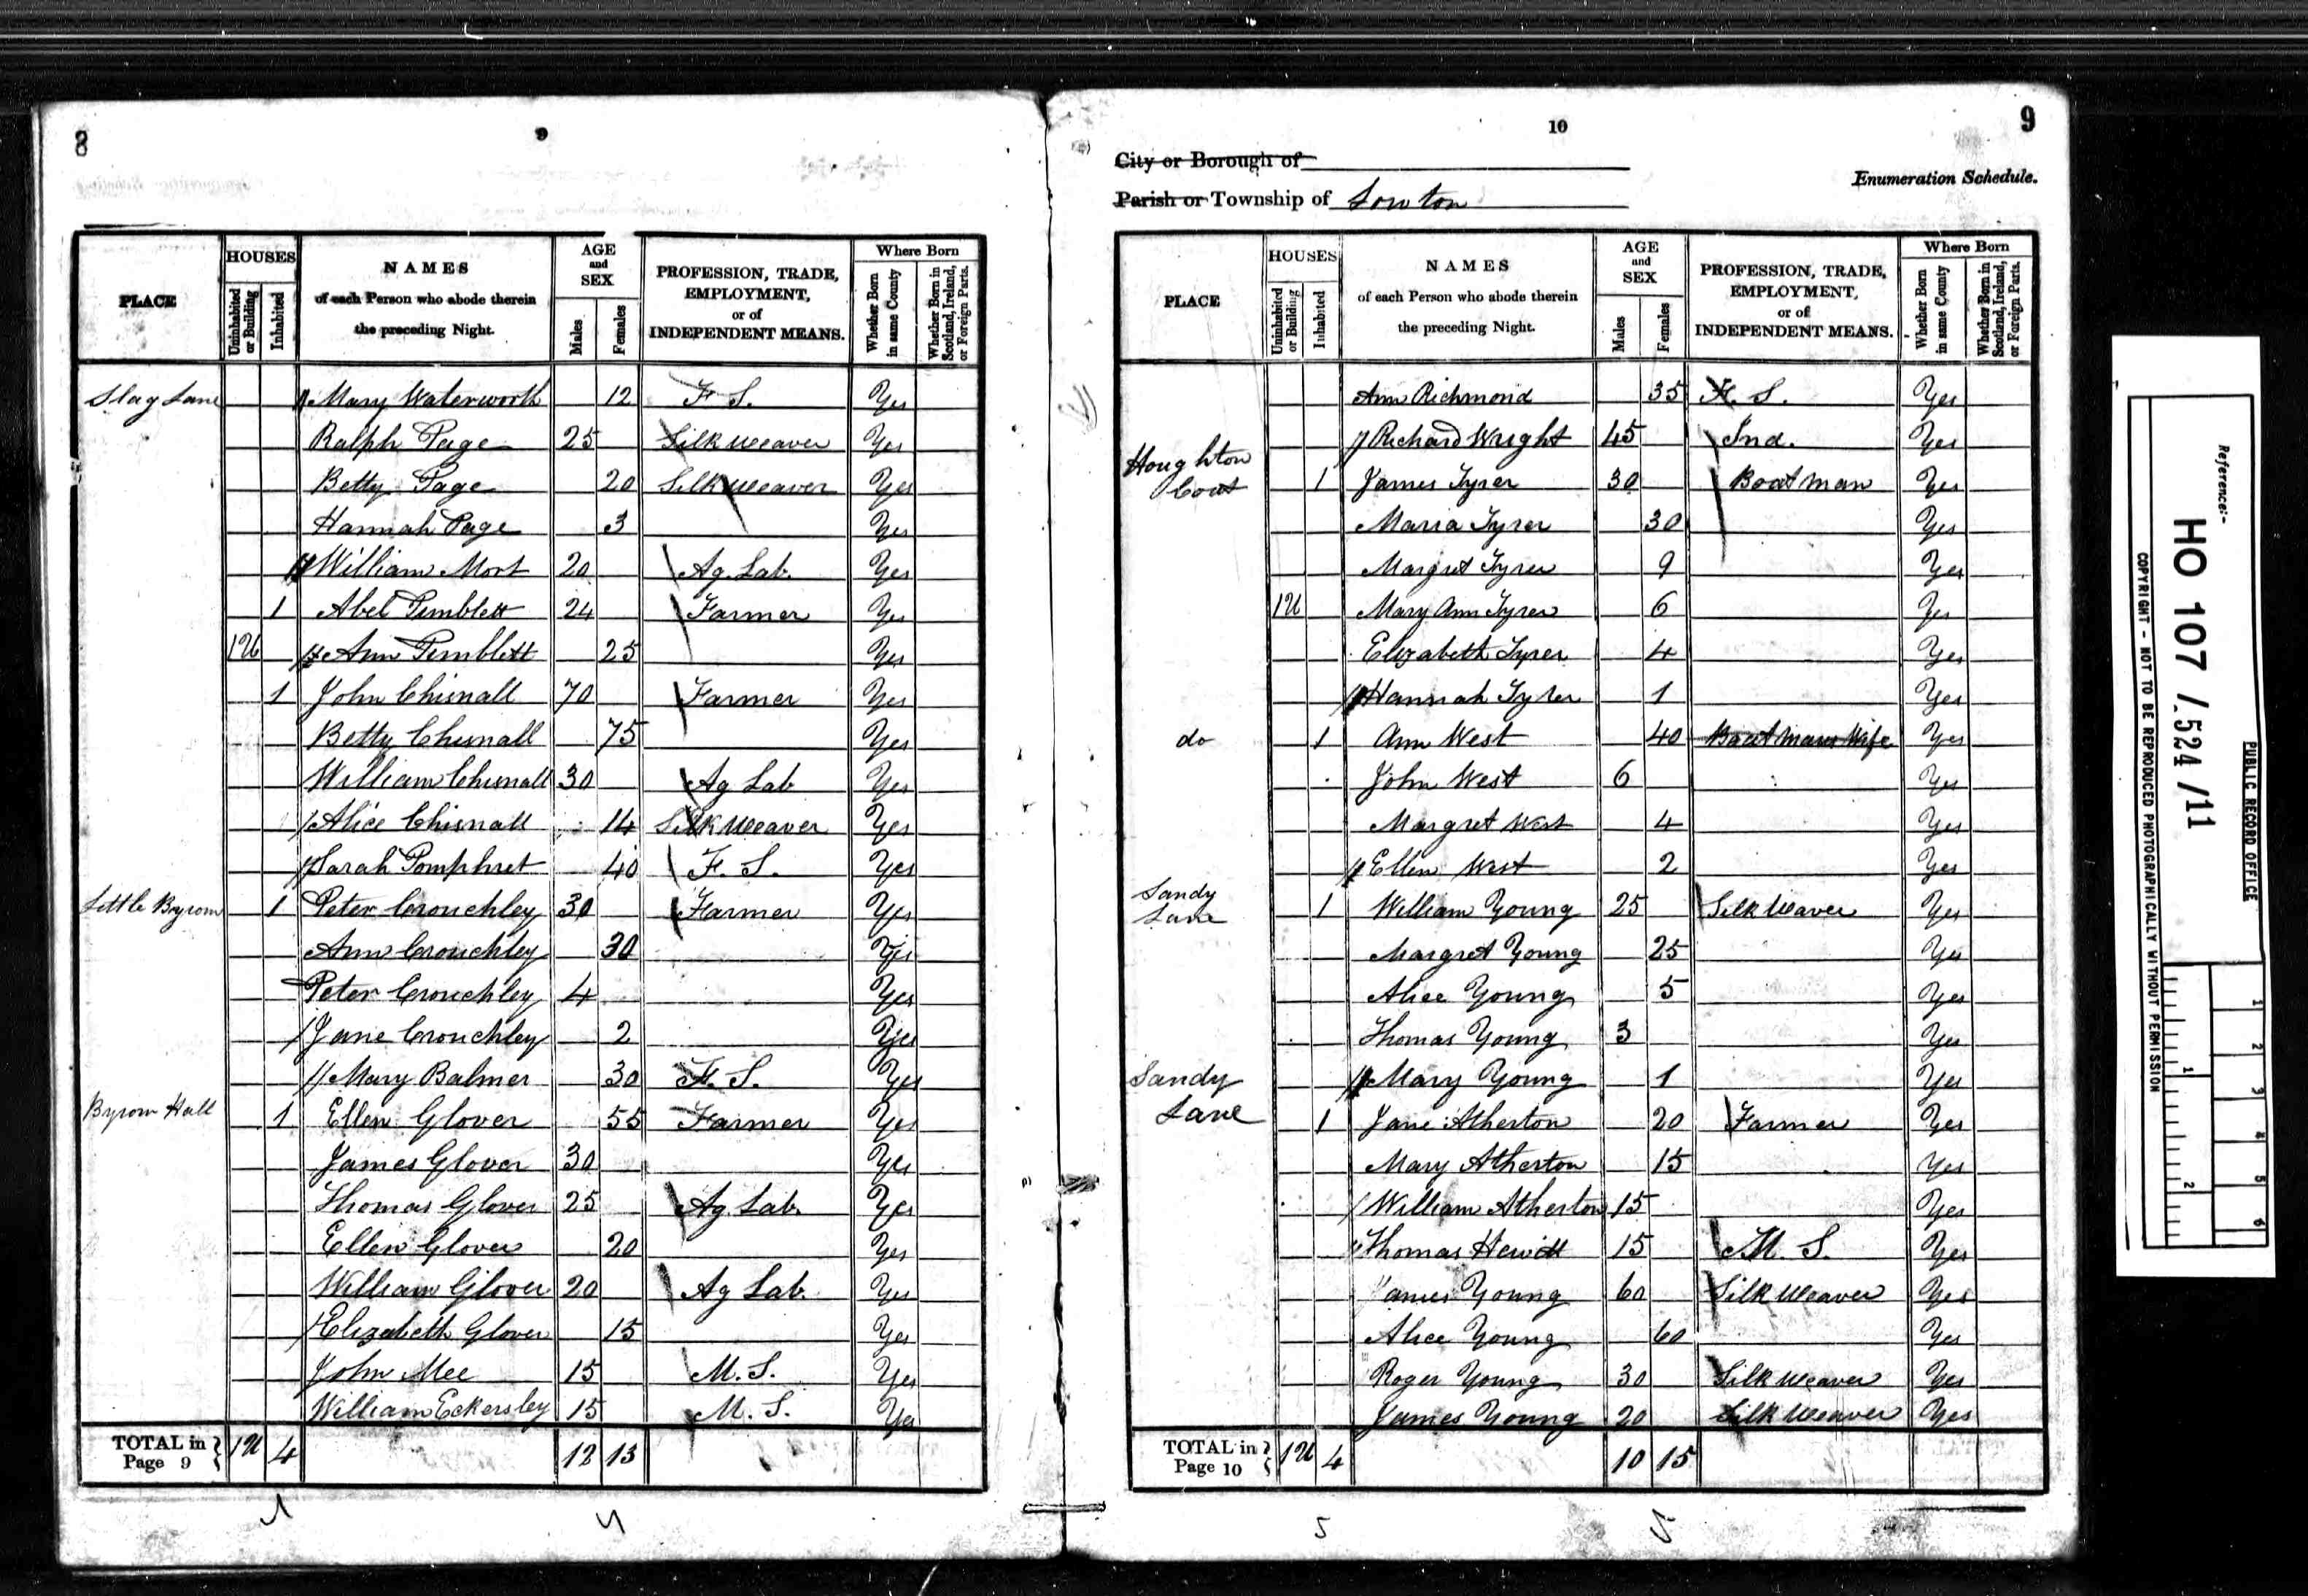 8
9
PLACE
HOUSES
Uninhabited or Building
Inhabited
NAMES
of each Person who abode therein
the preceding Night.
AGE
and
SEX
Males
Females
PROFESSION, TRADE,
EMPLOYMENT,
or of
INDEPENDENT MEANS.
Where Born
Whether Born in same County
Whether Born in Scotland, Ireland, or Foreign Parts.
Slag Lane Mary Waterworth 12 F. S. Yes
Ralph Page 25 Silk Weaver Yes
Betty Page 20 Silk Weaver Yes
Hannah Page 3 Yes
William Mort 20 Ag. Lab. Yes
1 Abel Pimblett 24 Farmer Yes
1U Ann Pimblett 25 Yes
1 John Chisnall 70 Farmer Yes
Betty Chisnall 75 Yes
William Chisnall 30 Ag Lab Yes
Alice Chisnall 14 Silk Weaver Yes
Sarah Pomphret 40 F. S. Yes
Little Byrom 1 Peter Crouchley 30 Farmer Yes
Ann Crouchley 30 Yes
Peter Crouchley 4 Yes
Jane Crouchley 2 Yes
Mary Balmer 30 F. S. Yes
Byrom Hall 1 Ellen Glover 55 Farmer Yes
James Glover 30 Yes
Thomas Glover 25 Ag Lab. Yes
Ellen Glover 20 Yes
William Glover 20 Ag Lab. Yes
Elizabeth Glover 15 Yes
John Mee 15 M. S. Yes
William Eckersley 15 M. S. Yes
TOTAL in Page 9 1U 4 12 13
10
9
City or Borough of
Parish or Township of Lowton
Enumeration Schedule.
PLACE
HOUSES
Uninhabited or Building
Inhabited
NAMES
of each Person who abode therein
the preceding Night.
AGE
and
SEX
Males
Females
PROFESSION, TRADE,
EMPLOYMENT,
or of
INDEPENDENT MEANS.
Where Born
Whether Born in same County
Whether Born in Scotland, Ireland, or Foreign Parts.
Ann Richmond 35 F. S. Yes
Richard Wright 45 Ind. Yes
Houghton 1 James Tyrer 30 Boatman Yes
Maria Tyrer 30 Yes
Margret Tyrer 9 Yes
1U Mary Ann Tyrer 6 Yes
Elizabeth Tyrer 4 Yes
Hannah Tyrer 1 Yes
do 1 Ann West 40 Boatmans Wife Yes
John West 6 Yes
Margret West 4 Yes
Ellen West 2 Yes
Sandy Lane 1 William Young 25 Silk Weaver Yes
Margret Young 25 Yes
Alice Young 5 Yes
Thomas Young 3 Yes
Sandy Mary Young 1 Yes
Lane 1 Jane Atherton 20 Farmer Yes
Mary Atherton 15 Yes
William Atherton 15 Yes
Thomas Hewitt 15 M. S. Yes
James Young 60 Silk Weaver Yes
Alice Young 60 Yes
Roger Young 30 Silk Weaver Yes
James Young 20 Silk Weaver Yes
TOTAL in Page 10 1U 4 10 15
5
PUBLIC RECORD OFFICE
Reference:-
HO 107 / 524 / 11
COPYRIGHT - NOT TO BE REPRODUCED PHOTOGRAPHICALLY WITHOUT PERMISSION
1 2 3 4 5 6
1 2